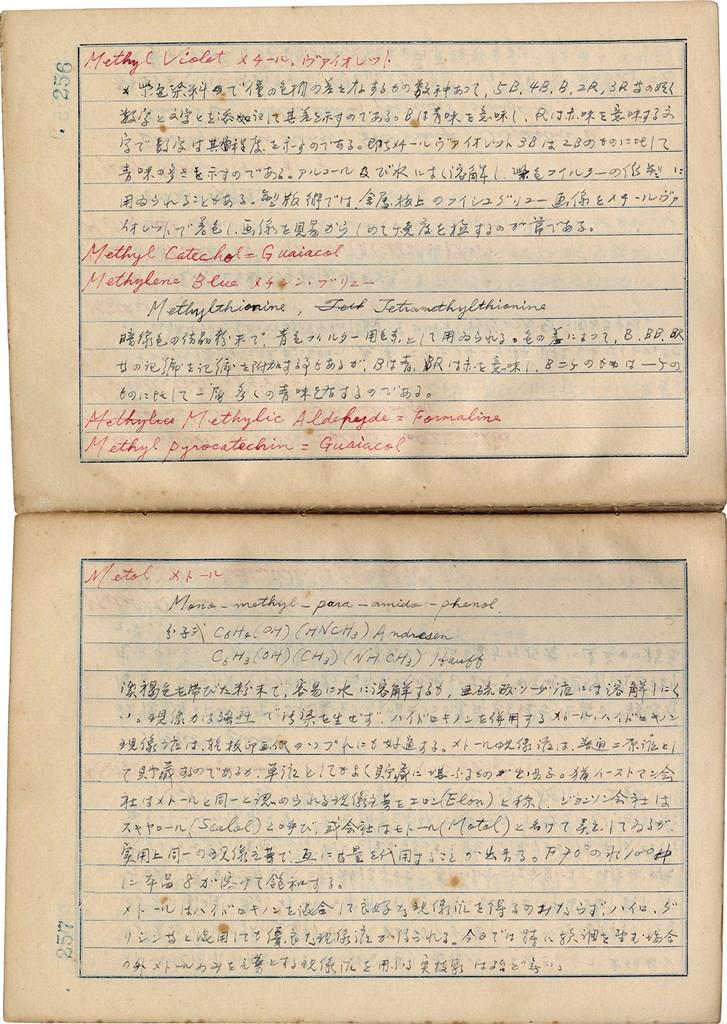 256
Methyl Violet メチール.ヴァイオレット
紫色染料 ので僅の色相の差 数種あつて, 5B, 4B, B, 2R, 3R 等の如く
数字と文字とを添加記して其差を示すのである。Bは青味を意味し, Rは赤味を意味する文
字で数字は其 程度を示すのである。即ちメチールヴァイオレット3Bは2Bのものに比して
青味の多きを示すのである。アルコール及び水によく溶解し, 紫色フイルターの 製に
用ゐられることもある。製版術では, 金属板上のフイシュグリュー画像をメチールヴァ
イオレットで着色し, 画像を見易からしめて を検するのが常である。
Methyl Catechol = Guaiacol
Methylene Blue メチレン・ブリュー
Methylthionine, Tetramethylthionine
暗緑色の結晶粉末で, 青色フィルター用色素として用ゐられる。色の差によつて, B, BB, BR
等の記号を附加する事もあるが, Bは青, Rは赤を意味し,
ものに比して一層多くの青味を有するのである。
Methylic Aldehyde = Formaline
Methyl pyrocatechin = Guaiacol
Metol メトール
Mono-methyl-para-amido-phenol.
分子式 C6H4(OH)(HNCH3) Andresen
C6H3(OH)(CH3)(NHCH3) Hauff
淡褐色を帯びた粉末で, 容易に水に溶解するが, 亜硫酸ソーダ液には溶解しにく
い。現像力は強性で汚染を生ぜず, ハイドロキノンを併用するメトール・ハイドロキノン
現像液は, 乾板印画紙のいづれにも好適する。メトール現像液は, 普通二原液とし
て貯蔵するのであるが, 単液としてもよく貯蔵に堪ふるものが出来る。猶イーストマン会
社はメトールと同一と認められる現像主薬をエロン(Elon)と称し, ジョンソン会社は
スキャロール(Scalol)と呼び, 或会社はモトール(Motol)と名けて 売してゐるが,
実用上同一の現像主薬で, 互に 量を代用することが出来る。F70°の水100
に本品8が溶けて飽和する。
メトールはハイドロキノンを混合して良好な現像液を得るのみならず, パイロ, グ
リシン等と混用しても優良な現像液が得られる。今日では特に軟調を望む場合
の外メトールのみを主薬とする現像液を用ふる実技家は殆ど無い。
257